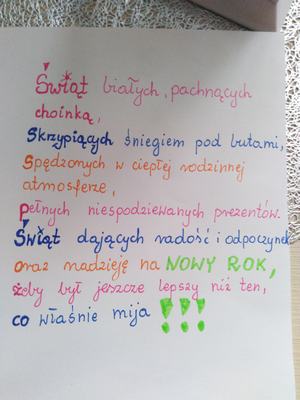 Świąt białych, pachnących
choinką,
Skrzypiących śniegiem pod butami,
Spędzonych w ciepłej rodzinnej
atmosferze,
Pełnych niespodziewanych prezentów.
Świąt dających radość i odpoczynek
oraz nadzieję na NOWY ROK,
żeby był jeszcze lepszy niż ten,
co właśnie mija !!!